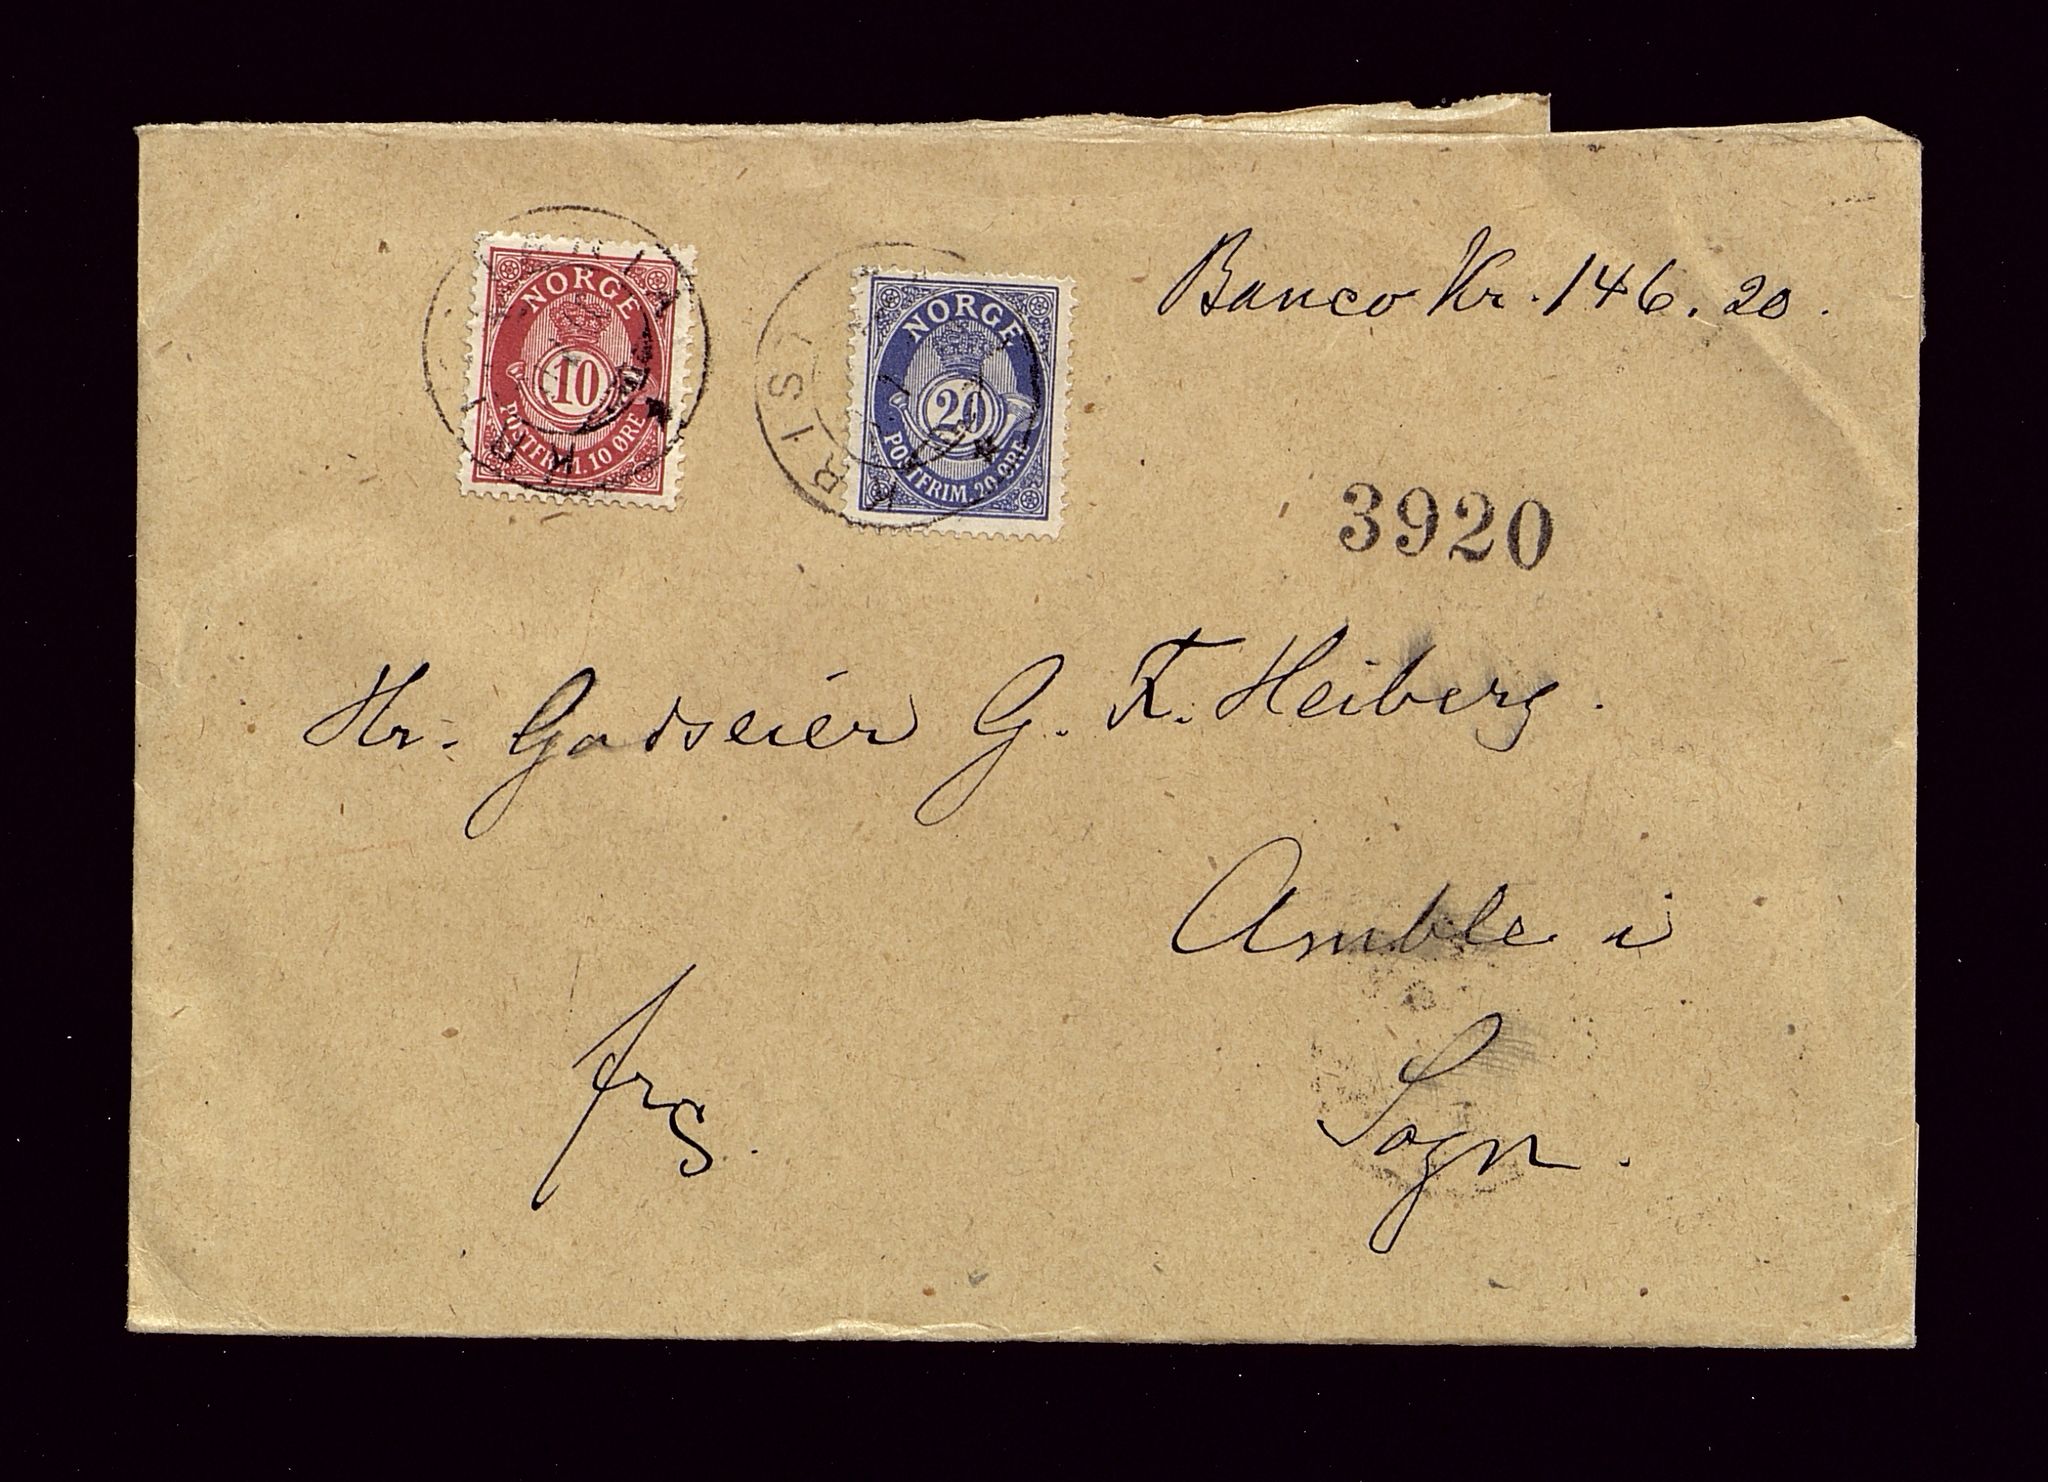 NORGE
10
POSTFRIM. 10 ØRE
KRISTIANIA
NORGE
20
POSTFRIM. 20 ØRE
KRIST
Banco Kr. 146.20.
3920
Hr. Godseier G. F. Heiberg.
Amble i
Sogn.
frS.